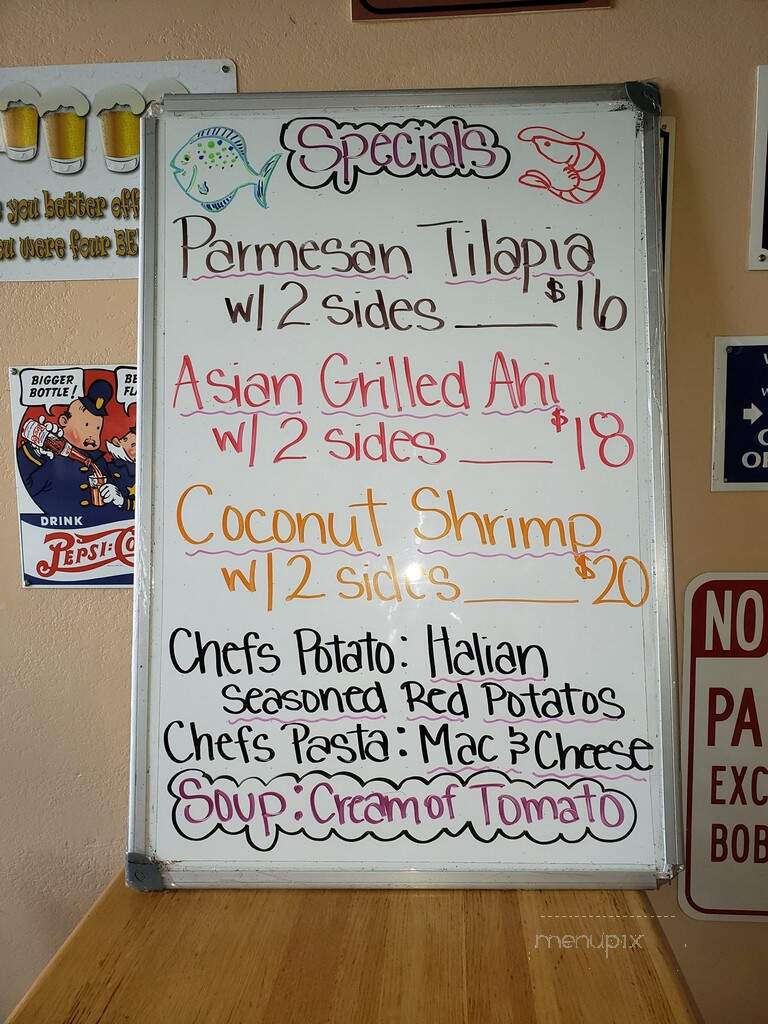 Specials
Parmesan Tilapia
w/ 2 sides ____ $16
Asian Grilled Ahi
w/ 2 sides ____ $18
Coconut Shrimp
w/ 2 sides ____ $20
Chefs Potato: Italian
seasoned Red Potatos
Chefs Pasta: Mac & Cheese
Soup: Cream of Tomato
you better off
u were four BE
BIGGER
BOTTLE!
BE
FL
DRINK
PEPSI:CO
NO
PA
EXC
BOB
OR
menupix